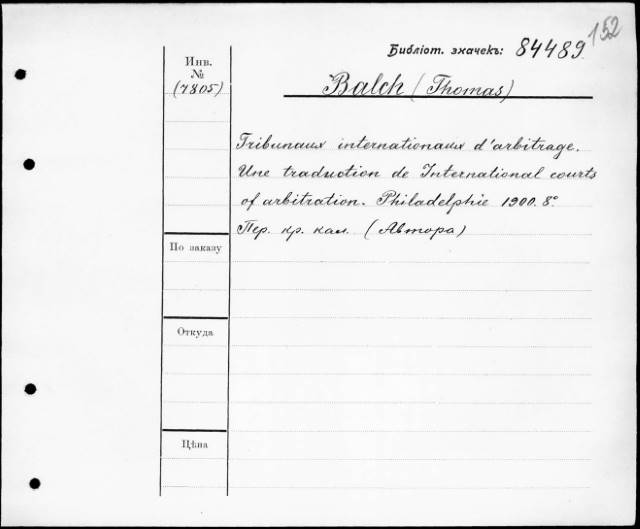 152
Библіот. значекъ: 84489.
Инв.
№
(7805)
Balch (Thomas)
Tribunaux internationaux d'arbitrage.
Une traduction de International courts
of arbitration. Philadelphie 1900. 8º
Пер. кр. кал. (Автора)
По заказу
Откуда
Цѣна